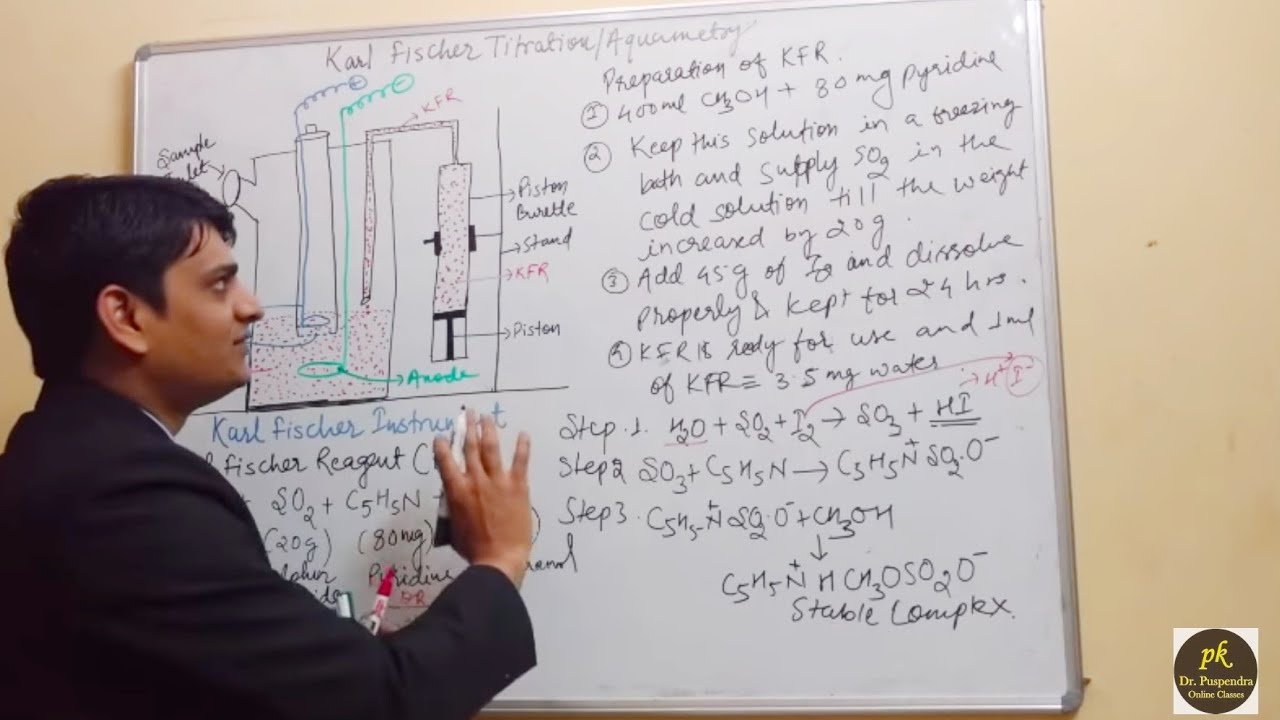 Karl Fischer Titration/Aquametry
KFR
Sample
Inlet
Piston
Burette
Stand
KFR
Piston
Anode
Karl Fischer Instrum
Fischer Reagent (
+ SO2 + C5H5N +
(20g) (80mg)
Pyridine
Preparation of KFR.
① 400ml CH3OH + 80 mg pyridine
② Keep this solution in a freezing
bath and supply SO2 in the
cold solution till the weight
increased by 20g.
③ Add 45g of I2 and dissolve
properly & kept for 24 hrs.
④ KFR is ready for use and 1ml
of KFR ≡ 3.5 mg water
→ H+ I-
Step.1. H2O + SO2 + I2 → SO3 + HI
Step 2 SO3 + C5H5N → C5H5N+ SO2·O-
Step 3. C5H5-N+ SO2·O- + CH3OH
↓
C5H5N+ H CH3OSO2O-
Stable Complex.
pk
Dr. Puspendra
Online Classes